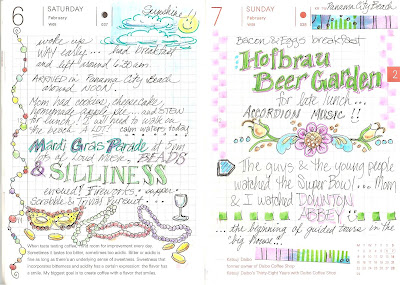 6
SATURDAY
February
W05
037
Sunshine!
woke up
WAY early... had breakfast
and left around 6:30 am.
ARRIVED in Panama City Beach
around NOON.
Mom had cookies, cheesecake,
homemade apple pie... and STEW
for lunch! I will need to walk on
the beach A LOT! calm waters today
Mardi Gras Parade at 5pm
lots of Loud Music, BEADS
& SILLINESS
ensued! Fireworks... super
scrabble & Trivial Pursuit...
When taste testing coffee
room for improvement every day.
Sometimes it tastes too bitter, sometimes too acidic. Bitter or acidic is
fine as long as there's an underlying sense of sweetness. Sweetness that
incorporates bitterness and acidity has a certain expression: the flavor has
a smile. My biggest goal is to create coffee with a flavor that smiles.
7
SUNDAY
February
W05
038
Panama City Beach
Bacon & Eggs breakfast
Hofbrau
Beer Garden
for late lunch...
ACCORDION MUSIC!!
2
The guys & the young people
watched the Super Bowl... Mom
& I watched DOWNTON
ABBEY!!
... the beginning of guided tours in the
"big house"!
Katsuji Daibo
former owner of Daibo Coffee Shop
Katsuji Daibo's Thirty-Eight Years with Daibo Coffee Shop